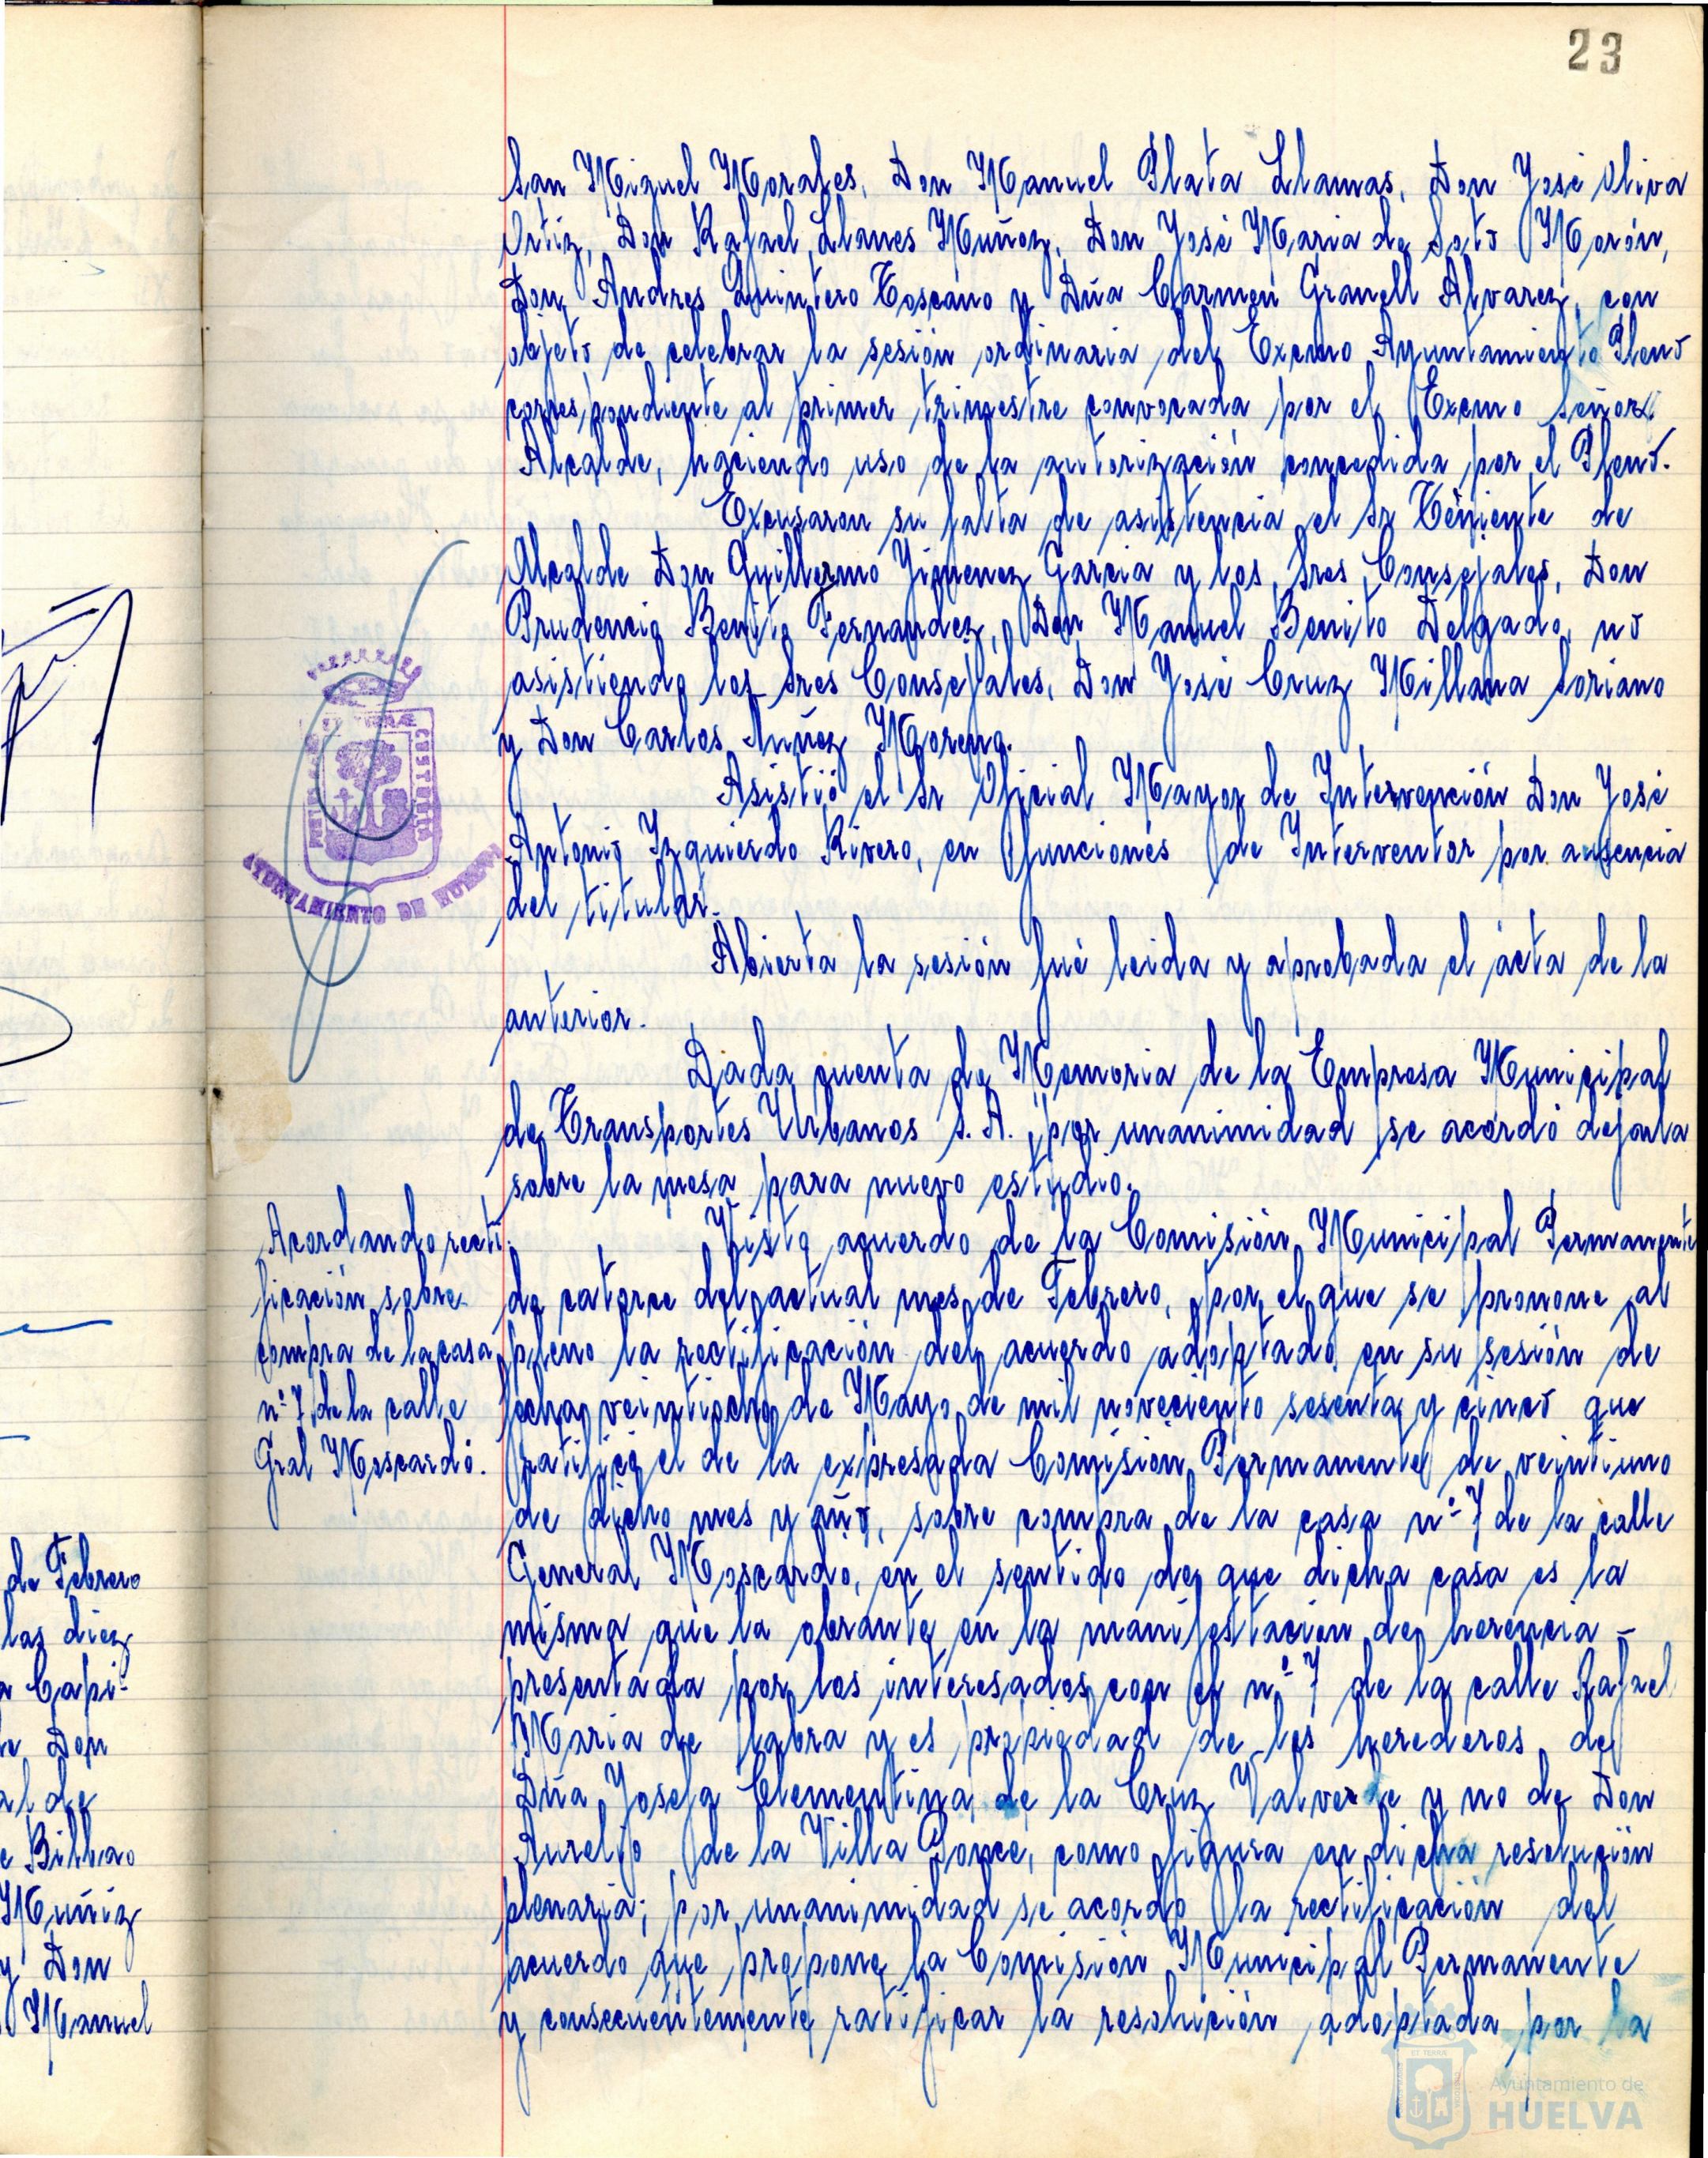 23
San Miguel Morales, Don Manuel Plata Llamas, Don José Oliva
Ortiz, Don Rafael Llanes Muñoz, Don José Maria de Soto Morón,
Don Andres Quintero Toscano y Dña Carmen Granell Alvarez, con
objeto de celebrar la sesión ordinaria del Excmo Ayuntamiento Pleno
correspondiente al primer trimestre convocada por el Excmo Señor
Alcalde, haciendo uso de la autorización concedida por el Pleno.
Excusaron su falta de asistencia el Sr Teniente de
Alcalde Don Guillermo Jimenez Garcia y los Sres Consejales, Don
Prudencio Benito Fernandez, Don Manuel Benito Delgado, no
asistiendo los Sres Consejales, Don José Cruz Millana Soriano
y Don Carlos Nuñez Moreno.
Asistió el Sr Oficial Mayor de Intervención Don José
Antonio Izquierdo Rivero, en funciones de Interventor por ausencia
del titular.
Abierta la sesión fué leida y aprobada el acta de la
anterior.
Dada cuenta de Memoria de la Empresa Municipal
de Transportes Urbanos S. A., por unanimidad se acordó dejarla
sobre la mesa para nuevo estudio.
Acordando recti-
ficación sobre
compra de la casa
nº 7 de la calle
Gral Moscardó.
Visto acuerdo de la Comisión Municipal Permanente
de catorce del actual mes de Febrero, por el que se propone al
pleno la rectificación del acuerdo adoptado en su sesión de
fecha veintiocho de Mayo de mil noveciento sesenta y cinco que
ratificó el de la expresada Comisión Permanente de veintiuno
de dicho mes y año, sobre compra de la casa nº 7 de la calle
General Moscardo, en el sentido de que dicha casa es la
misma que la obrante en la manifestación de herencia -
presentada por los interesados con el nº 7 de la calle Rafael
Maria de Labra y es propiedad de los herederos de
Dña Josefa Clementina de la Cruz Valverde y no de Don
Aurelio de la Villa Ponce, como figura en dicha resolución
plenaria; por unanimidad se acordo la rectificación del
acuerdo que propone la Comisión Municipal Permanente
y consecuentemente ratificar la resolución adoptada por la
AYUNTAMIENTO DE HUELVA
de Febrero
las diez
Capi-
Don
al de
Bilbao
Muñiz
y Don
Manuel
Ayuntamiento de
HUELVA